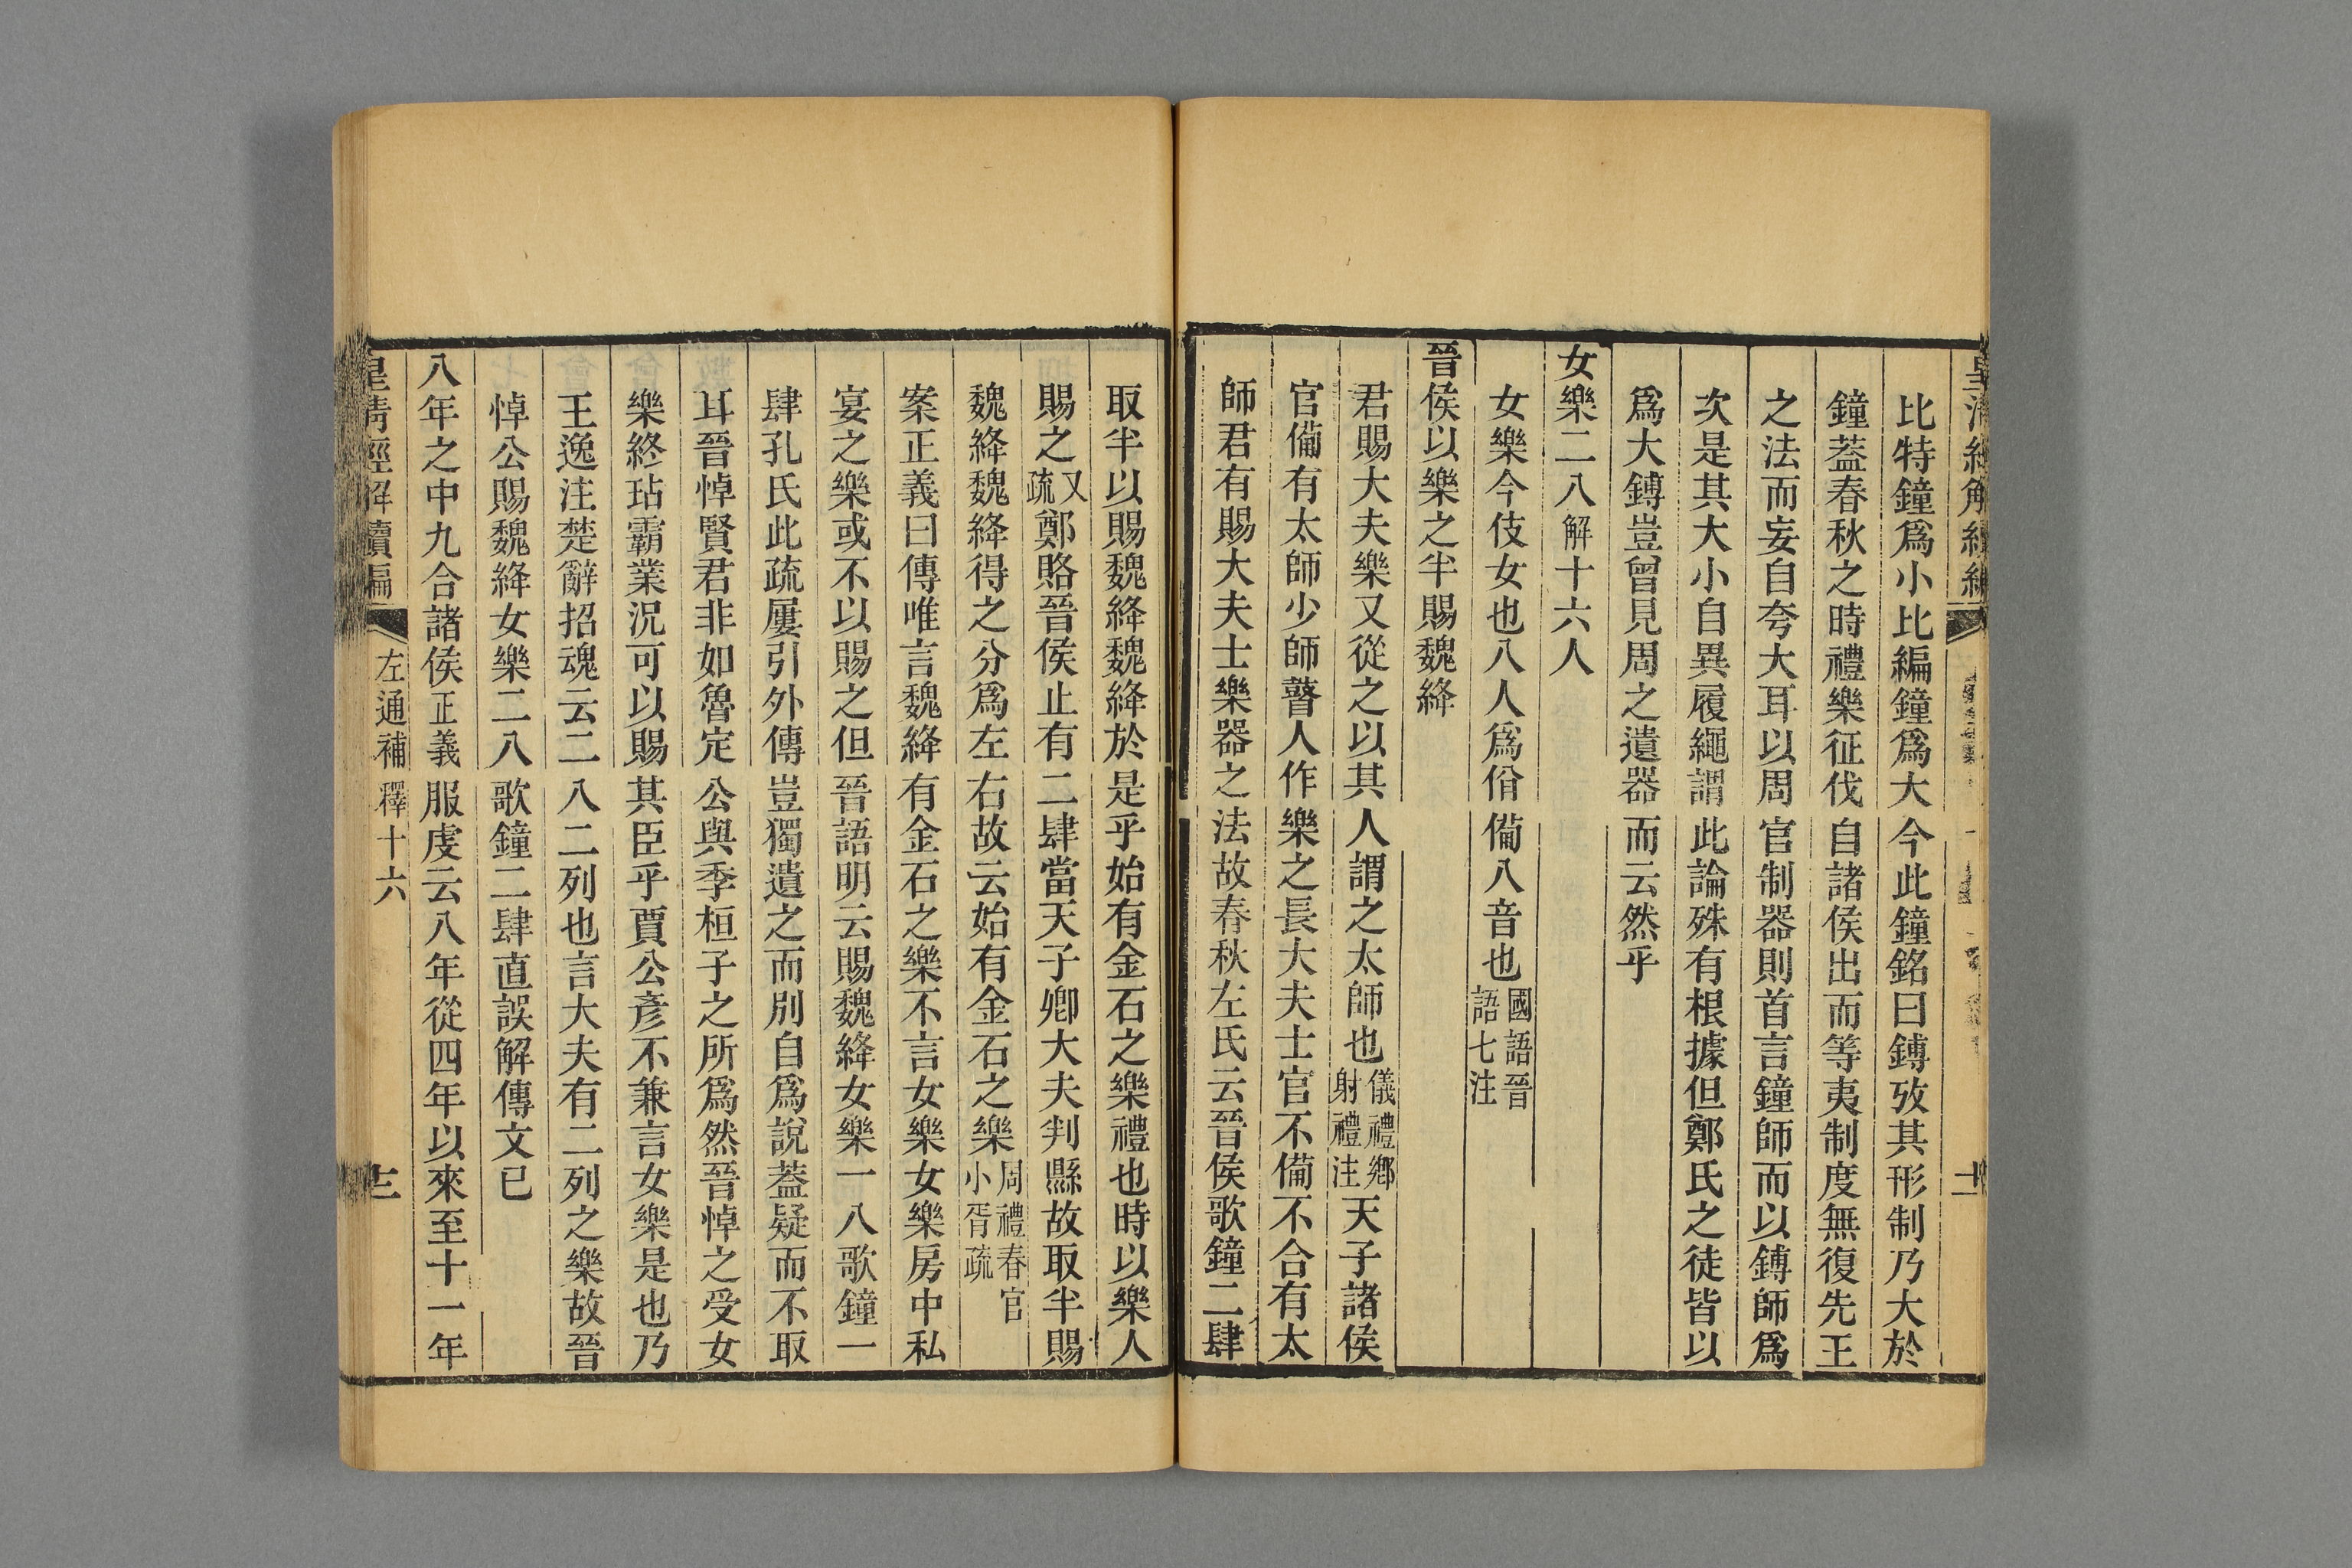 皇清經解續編
比特鐘爲小比編鐘爲大今此鐘銘曰鎛攷其形制乃大於
鐘蓋春秋之時禮樂征伐自諸侯出而等夷制度無復先王
之法而妄自夸大耳以周官制器則首言鐘師而以鎛師爲
次是其大小自異履繩謂此論殊有根據但鄭氏之徒皆以
爲大鎛豈曾見周之遺器而云然乎
女樂二八解十六人
女樂今伎女也八人爲佾備八音也國語晉語七注
晉侯以樂之半賜魏絳
君賜大夫樂又從之以其人謂之太師也儀禮鄉射禮注天子諸侯
官備有太師少師瞽人作樂之長大夫士官不備不合有太
師君有賜大夫士樂器之法故春秋左氏云晉侯歌鐘二肆
取半以賜魏絳魏絳於是乎始有金石之樂禮也時以樂人
賜之又疏鄭賂晉侯止有二肆當天子卿大夫判縣故取半賜
魏絳魏絳得之分爲左右故云始有金石之樂周禮春官小胥疏
案正義曰傳唯言魏絳有金石之樂不言女樂女樂房中私
宴之樂或不以賜之但晉語明云賜魏絳女樂一八歌鐘一
肆孔氏此疏屢引外傳豈獨遺之而別自爲說蓋疑而不取
耳晉悼賢君非如魯定公與季桓子之所爲然晉悼之受女
樂終玷霸業況可以賜其臣乎賈公彥不兼言女樂是也乃
王逸注楚辭招魂云二八二列也言大夫有二列之樂故晉
悼公賜魏絳女樂二八歌鐘二肆直誤解傳文已
八年之中九合諸侯正義服虔云八年從四年以來至十一年
皇清經解續編
左通補釋十六